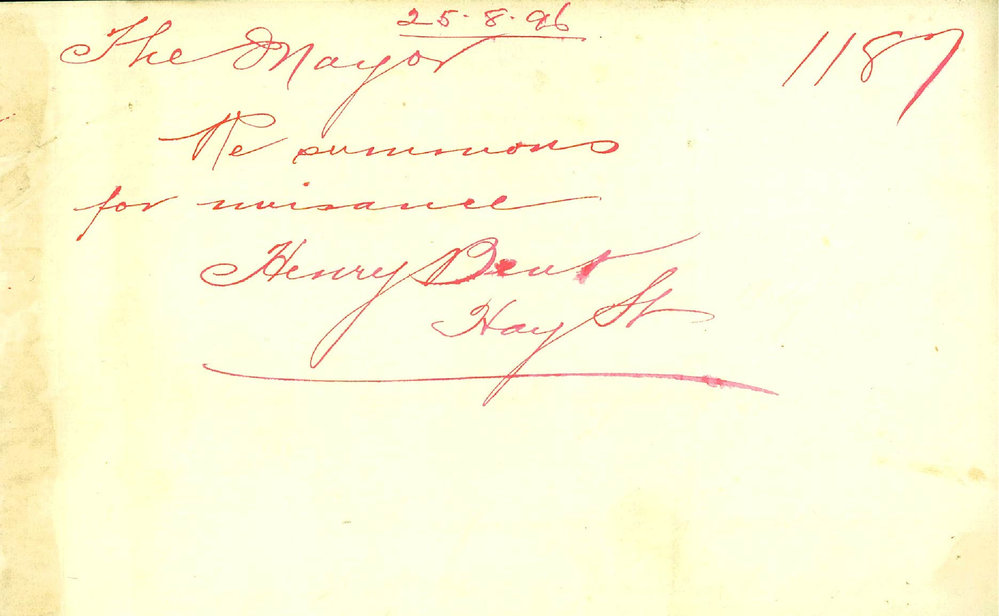 25.8.96
The Mayor
1187
Re summons
for nuisance
Henry Bent
Hay St